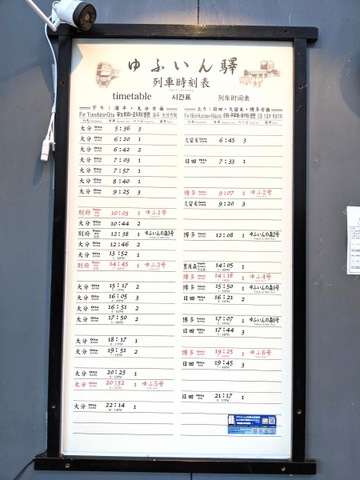 ゆふいん驛
列車時刻表
timetable 시간표 列车时间表
下り：湯平・大分方面
上り：日田・久留米・博多方面
大分 5:36 3
大分 6:20 1
大分 6:42 2
大分 7:03 1
大分 7:57 1
大分 8:40 1
大分 9:25 3
別府 10:03 1 ゆふ1号
大分 10:44 2
別府 12:38 1 ゆふいんの森1号
大分 12:46 2
大分 13:52 1
別府 14:45 1 ゆふ3号
大分 15:17 2
大分 16:05 3
大分 16:51 2
大分 17:50 2
大分 18:17 1
大分 19:51 2
大分 20:23 1
大分 20:52 1 ゆふ5号
大分 22:14 1
久留米 6:45 3
日田 7:33 1
博多 9:07 1 ゆふ2号
久留米 9:20 3
博多 12:08 1
14:05 1
博多 14:18 1 ゆふ4号
博多 15:50 1
日田 16:21 2
博多 17:07 1
日田 17:44 3
博多 19:25 1 ゆふ6号
日田 19:45 3
日田 21:17 1